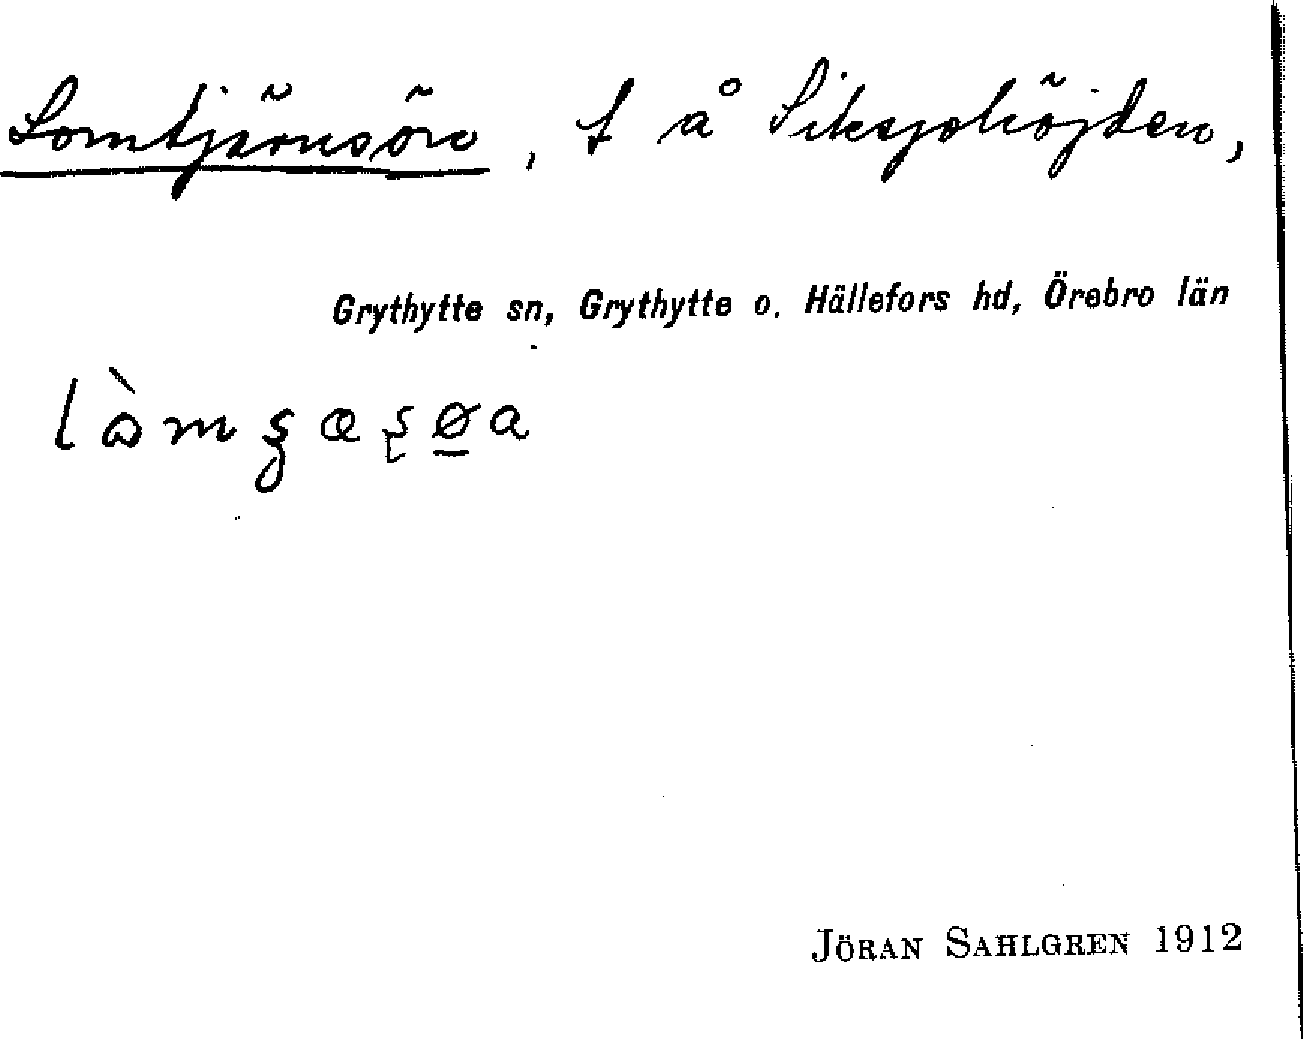 Lomtjärnsön, t å Siksjöhöjden,
Grythytte sn, Grythytte o. Hällefors hd, Örebro län
JÖRAN SAHLGREN 1912